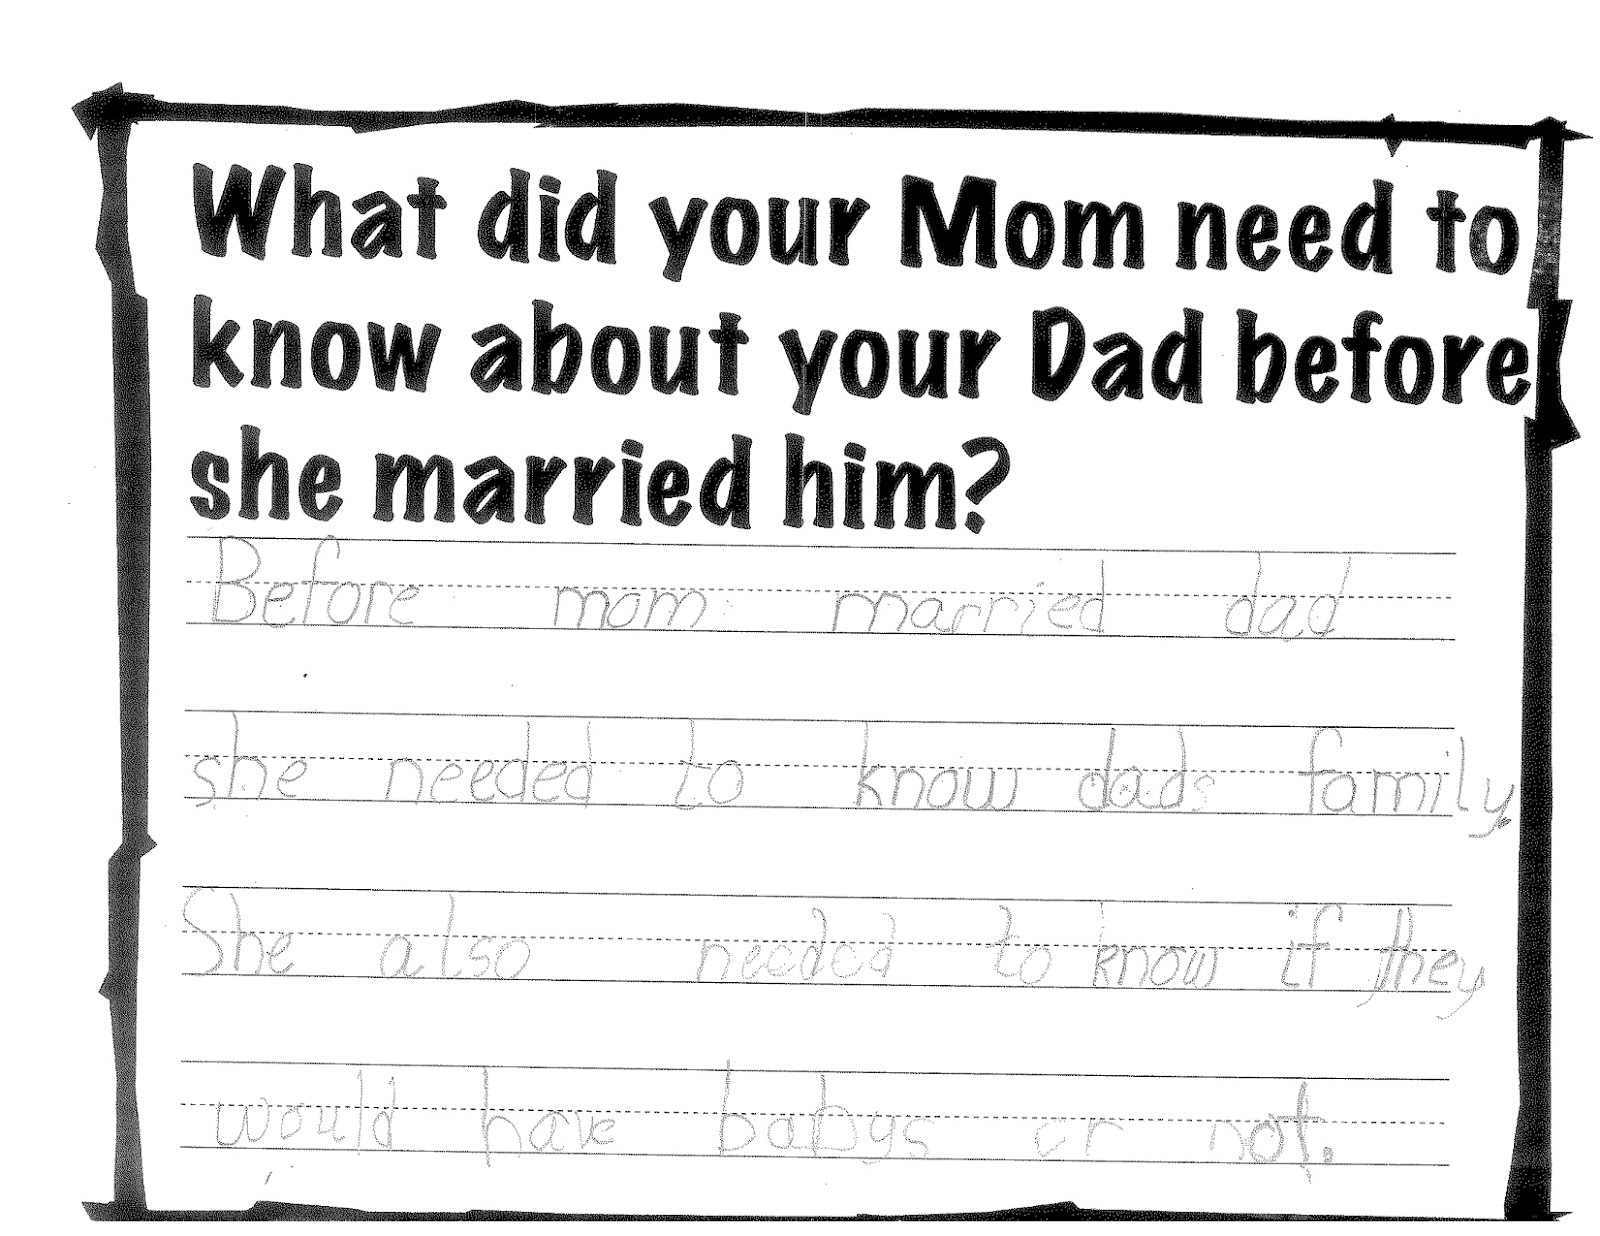 What did your Mom need to
know about your Dad before
she married him?
Before mom married dad
she needed to know dads family.
She also needed to know if they
would have babys or not.